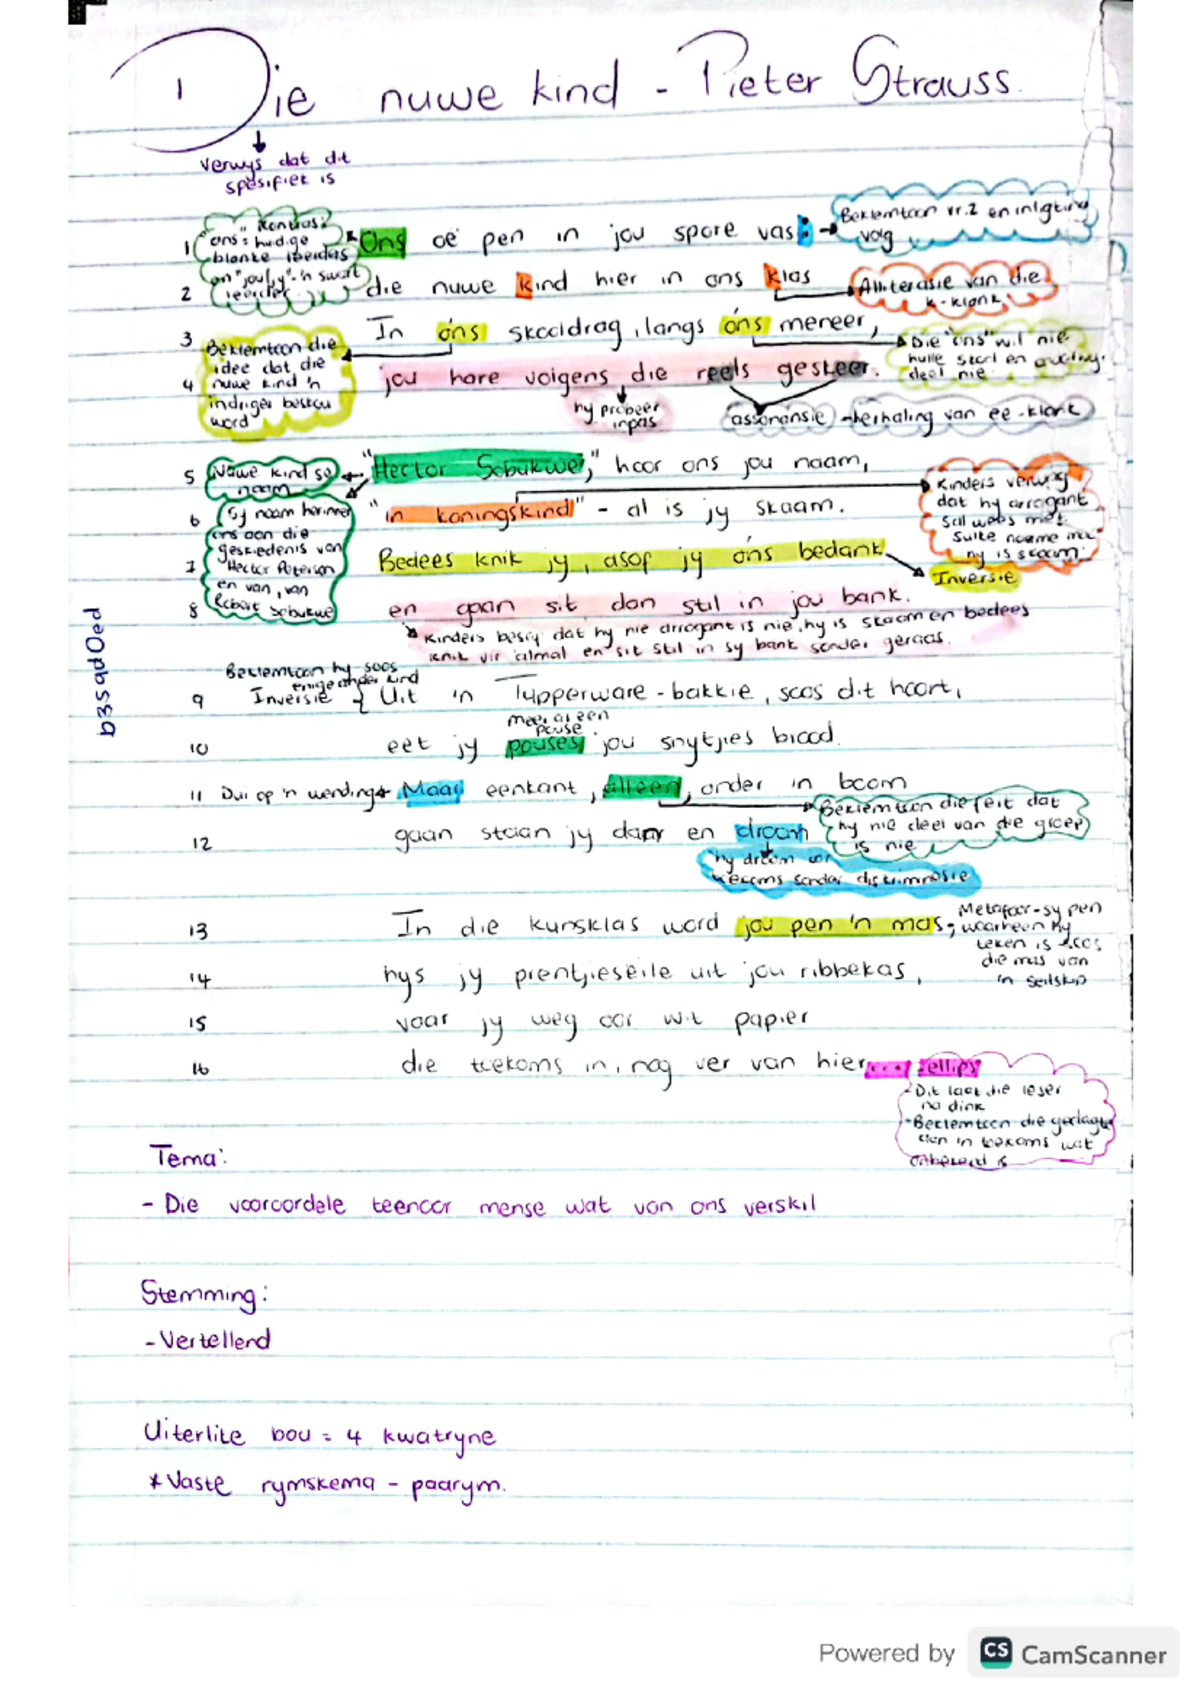 Die nuwe kind - Pieter Strauss.
Verwys dat dit
spesifiet is
1 Ons oë pen in jou spore vas:
"Kontras:
"ons = huidige
blanke
en "jou/jy"-'n swart
leerder
Beklemtoon vr.2 en inligting
volg
2 die nuwe kind hier in ons klas
Alliterasie van die
k-klank
3 In óns skooldrag, langs óns meneer,
Beklemtoon die
idee dat die
nuwe kind 'n
indringer beskou
word
Die "ons" wil nie
hulle skool en
deel nie
4 jou hare volgens die reels geskeer.
hy probeer
inpas
assonansie - herhaling van ee-klank
5 "Hector Sobukwe," hoor ons jou naam,
Nuwe kind se
naam
6 "'n koningskind" - al is jy skaam.
Sy naam herinner
ons aan die
geskiedenis van
Hector Peterson
en van, van
Robert Sobukwe
Kinders verwag
dat hy arrogant
sal wees met
sulke naame maar
hy is skaam
7 Bedees knik jy, asof jy óns bedank
Inversie
8 en gaan sit dan stil in jou bank.
Kinders besry dat hy nie arrogant is nie, hy is skaam en bedees
knik vir almal en sit stil in sy bank sonder geraas.
Beklemtoon hy soos
enige ander kind
9 Inversie { Uit 'n Tupperware-bakkie, soos dit hoort,
meer as een
pouse
10 eet jy pouses jou snytjies brood.
11 Dui op 'n wending Maar eenkant, alleen, onder 'n boom
Beklemtoon die feit dat
hy nie deel van die groep
is nie
12 gaan staan jy dan en droom
hy droom oor
toekoms sonder diskriminasie
13 In die kunsklas word jou pen 'n mas;
Metafoor-sy pen
waarheen hy
teken is soos
die mas van
'n seilskip
14 hys jy prentjieseile uit jou ribbekas,
15 vaar jy weg oor wit papier
16 die toekoms in, nog ver van hier.... ellips
- Dit laat die leser
na dink
- Beklemtoon die gedagte
aan 'n toekoms wat
onbekend is
b3sqd0ed
Tema:
- Die vooroordele teenoor mense wat van ons verskil
Stemming:
- Vertellend
Uiterlike bou = 4 kwatryne
* Vaste rymskema - paarrym.
Powered by CS CamScanner